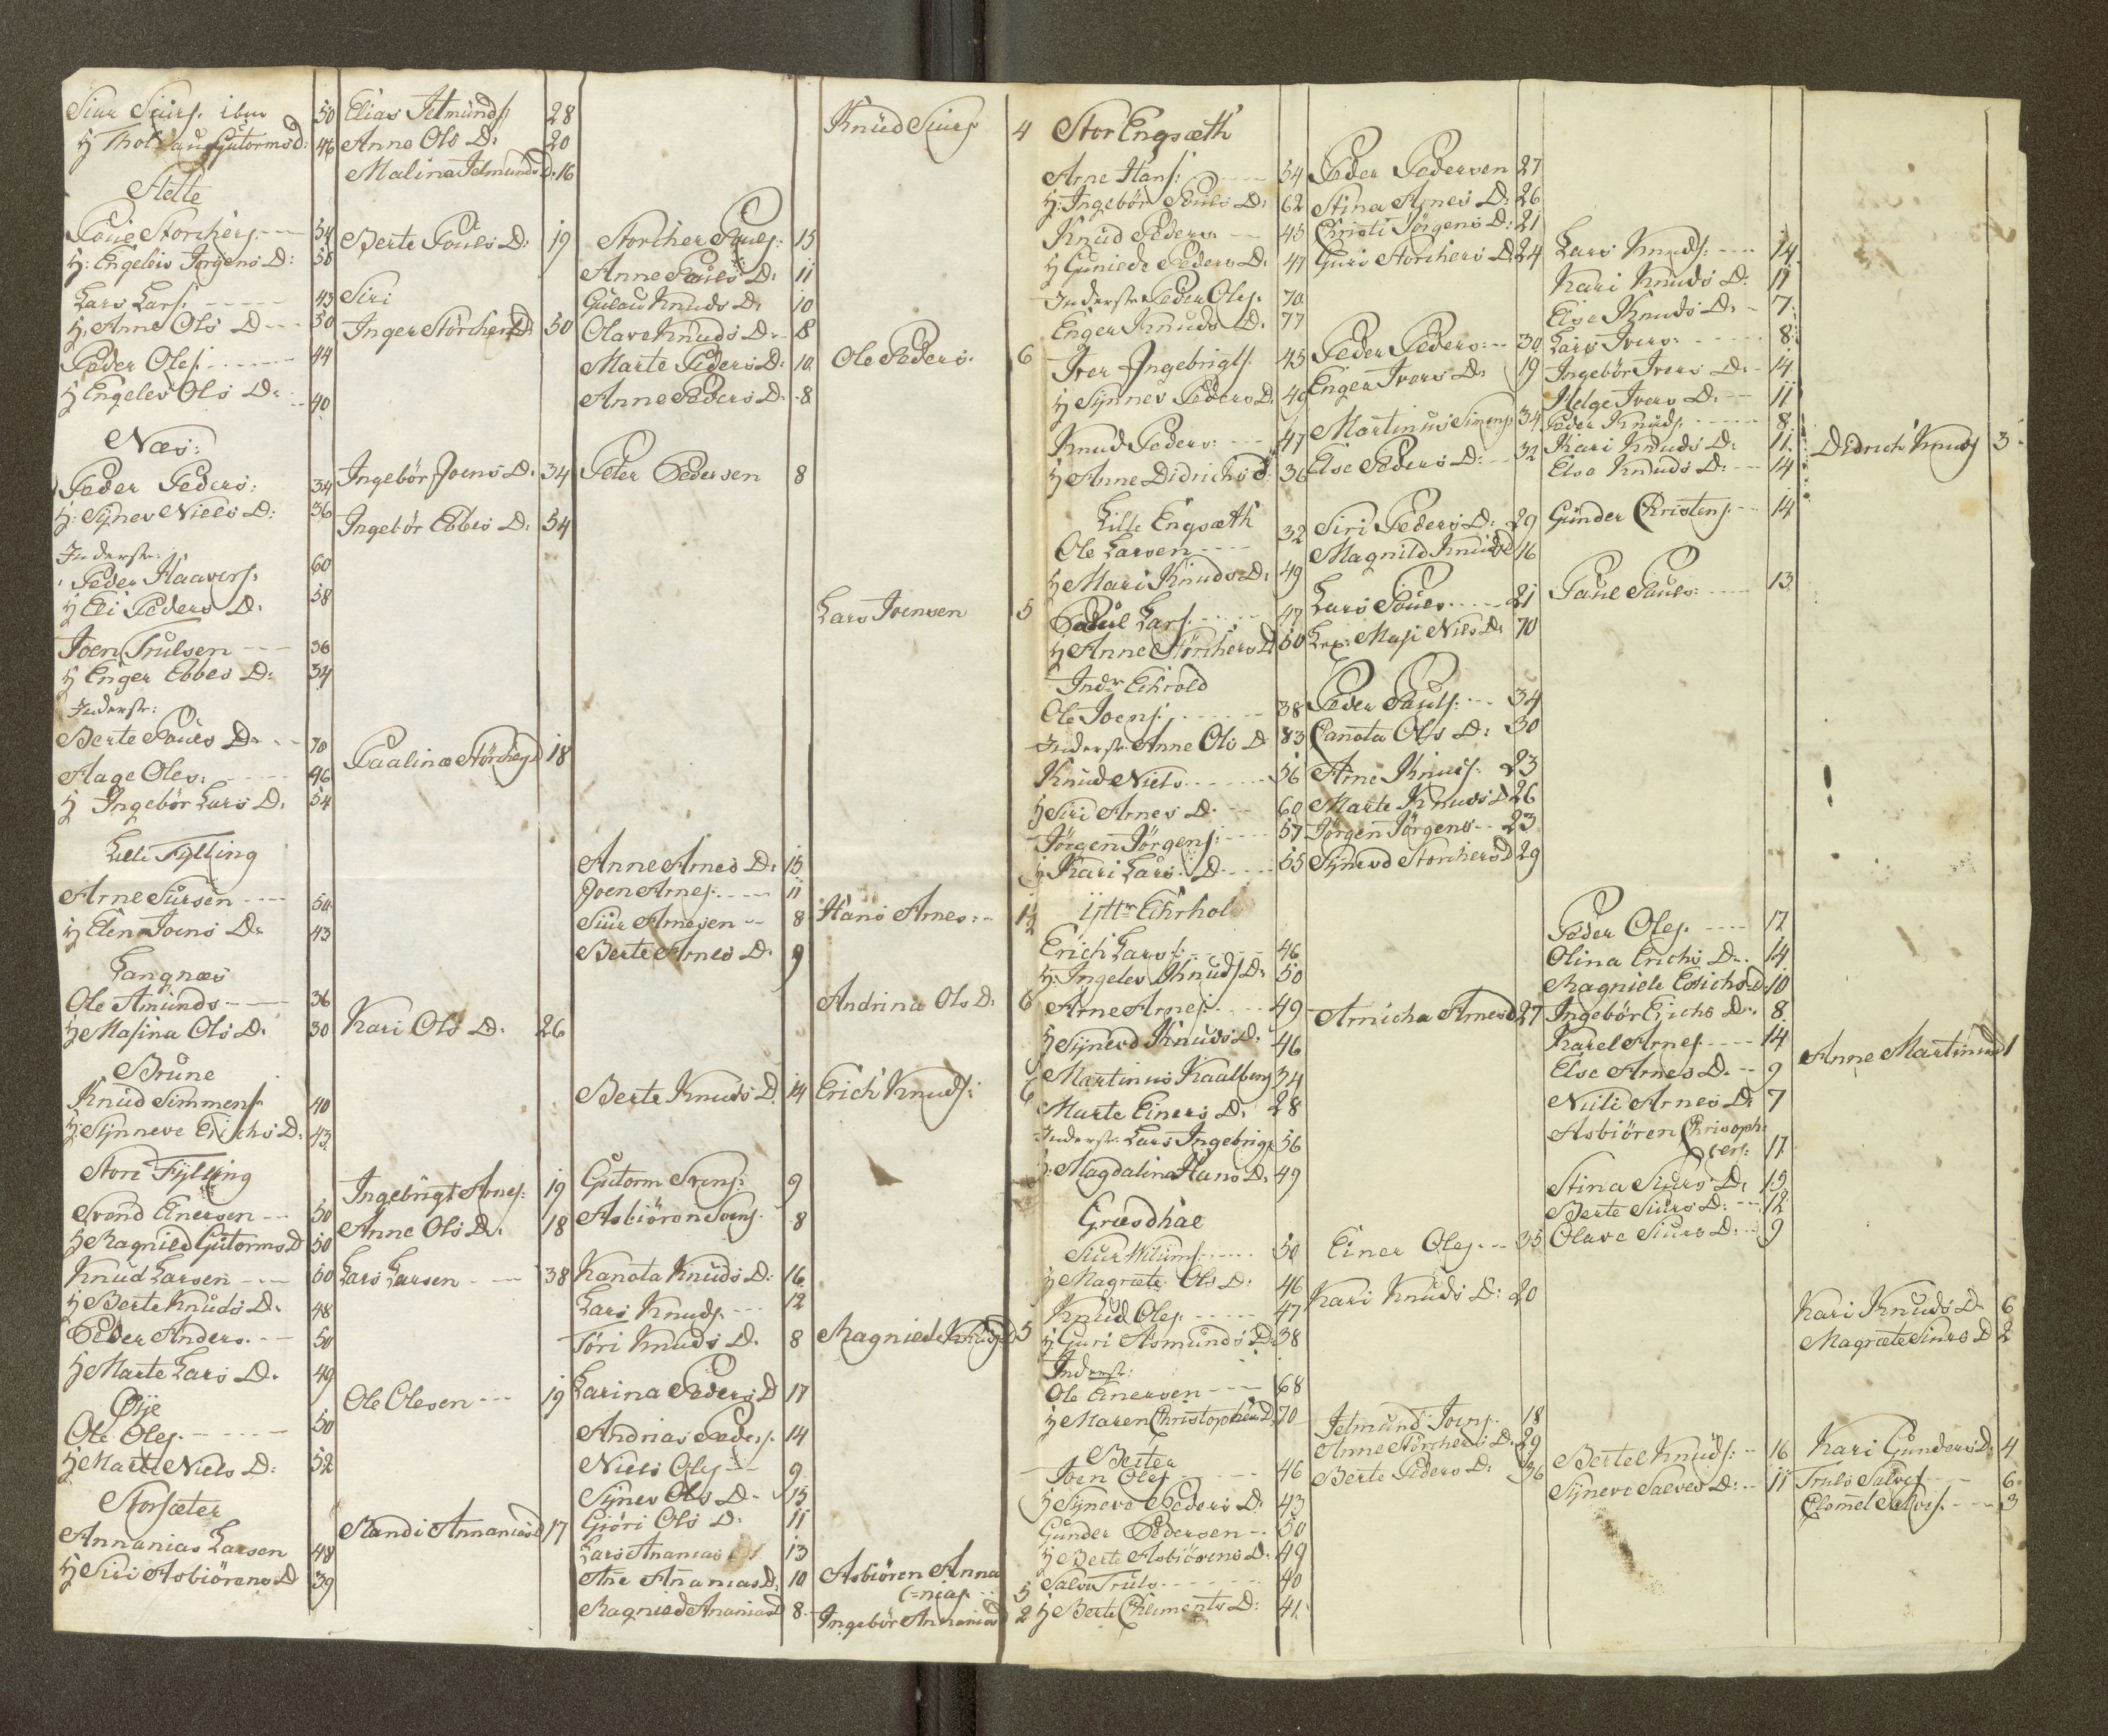 Siur Siurs. ibm 50 Elias Jetmunds 28 Knud Siurs 4
H Thol Guttorms d: 46 Anne Ols D: 20
Malina Jetmunds D: 16
Stette
Poue Storchers. 54 Berte Pouls D: 19 Storcher Pouls: 15
H: Engelev Jørgens D: 58 Anne Pouls D: 11
Lars Lars: 43 Siri Gulau Knuds D: 10
H: Anne Ols D 50 Inger Storchers D: 50 Olave Knuds D: 8
Peder Oles: 44 Marte Peders D: 10 Ole Peders: 6
H Engelev Ols D: 40 Anne Peders D: 8
Næs:
Peder Peders: 34 Ingebør Joens D: 34 Peter Pedersen 8
H: Synev Niels D: 36 Ingebør Ebbes D: 54
Inderstr:
Peder Haavers: 60
H Eli Peders D: 58
Joen Trulsen 36 Lars Joensen 5
H Enger Ebbes D: 34
Inderstr:
Berte Pouls D: 70
Aage Oles: 46 Paaline Storchers D 18
H Ingebør Lars D: 54
Lille Fylling
Anne Arnes D: 15
Arne Siursen 50 Joen Arnes. 11
H Elen Joens D: 43 Siur Arnesen 8 Hans Arnes: 1/2
Berte Arnes D: 9
Langnæs
Ole Amunds 36 Andrina Ols D: 6
H Masina Ols D: 30 Kari Ols D: 26
Brune
Knud Simmens. 40 Berte Knuds D 14 Erich Knuds: 6
H: Synneve Erichs D: 43
Store Fylling
Svend Einersen 50 Ingebrigt Arnes: 19 Gutorm Svens: 9
H Ragnild Gutorms D 50 Anne Ols D: 18 Asbiören Svens. 8
Knud Larsen 50 Lars Larsen 38 Kanota Knuds D: 16
H Berte Knuds D: 48 Lars Knuds. 12
Peder Anders. 50 Töri Knuds D: 8 Ragnield Knuds D 5
H Marte Lars D: 49 Karina Peders D 17
Øije
Ole Oles. 50 Ole Olesen 19 Andrias Peders. 14
H Marte Niels D: 52 Niels Oles 9
Storsæter
Synev Ols D. 15
Giöri Ols D: 11
Annanias Larsen 48 Randi Annanias D 17 Lars Ananias 13
H Siri Asbiörens D 39 Ane Ananias D: 10 Asbiören Anna
(=nias. 5
Ragnied Ananias D 8 Ingebör Annanias D 2
Stor Engsæth
Arne Hans: 54 Peder Pedersen 27
H: Ingebör Pouls D: 62 Stina Arnes D: 26
Knud Peders 45 Christi Jörgens D: 21
H Guniede Peders D: 47 Guri Storchers D 24 Lars Knuds: 14
Inderstr Peder Oles. 70 Kari Knuds D: 11
Enger Knuds D: 77 Else Knuds D: 7
Iver Ingebrigts 45 Peder Peders: 30 Lars Ivers: 8
H Synnev Peders D: 49 Enger Ivers D: 19 Ingebör Ivers D: 14
Helge Ivers D: 11
Knud Peders: 47 Martinus Simens 34 Peder Knuds. 8
H Anne Didrichs d: 36 Else Peders D: 32 Kari Knuds D: 11 Didrich Knuds 3
Else Knuds D: 14
Lille Engsæth
Ole Larsen 32 Siri Peders D: 29 Günder Christens. 14
H Mari Knuds D: 49 Magnild Knuds D 16
Poul Lars. 47 Lars Pouls 21 Paul Pauls: 13
H Anne Störchers D 50 Lex: Masi Nils D: 70
Indr Echrold
Ole Joens. 38 Peder Pauls: 34
Inderstr: Anne Ols D 83 Canota Ols D: 30
Knud Niels 56 Arne Knuds: 23
H Siri Arnes D: 60 Marte Knuds D 26
Jörgen Jörgens: 57 Jörgen Jörgens 23
H: Kari Lars D 55 Synevd Storchers D 29
Yttr Echrhol
Erich Lars: 46 Peder Oles. 17
H: Ingelev Knuds D: 50 Olina Erichs D: 14
Magnilde Erichs D 10
Arne Arnes. 49 Arnicha Arnes D 27 Ingebör Erichs D: 8
H Synevd Knuds D: 46 Karel Arnes. 14
Martinus Kaalberg 34 Else Arnes D: 9 Anne Martinus D 1
Marte Einers D: 28 Niili Arnes D: 7
Inderstr: Lars Ingebrigts 56 Asbiören Christoph=
H: Magdalina Hans D: 49 fers: 17
Græsdhal
Stina Siurs D: 15
Berte Siurs D: 12
Siur Wilums. 50 Einer Oles. 35 Olave Siurs D: 9
H Magrete Ols D: 46 Kari Knuds D: 20
Knud Oles. 47 Kari Knuds D. 6
H: Guri Asmunds D: 38 Magrete Siurs D 2
Inderstr:
Ole Einersen 68
H Maren Christophers D: 70 Jetmund Joens. 18
Berter
Anne Störchers D: 29
Joen Oles. 46 Berte Peders D: 36 Bertel Knuds: 16 Kari Gunders D: 4
H Syneve Peders D: 43 Syneve Salves D: 11 Truls Salves 6
Günder Pedersen 50 Clomet Salves. 3
H Berte Asbiörens D: 49
Salve Truls 40
H Berte Chliments D: 41